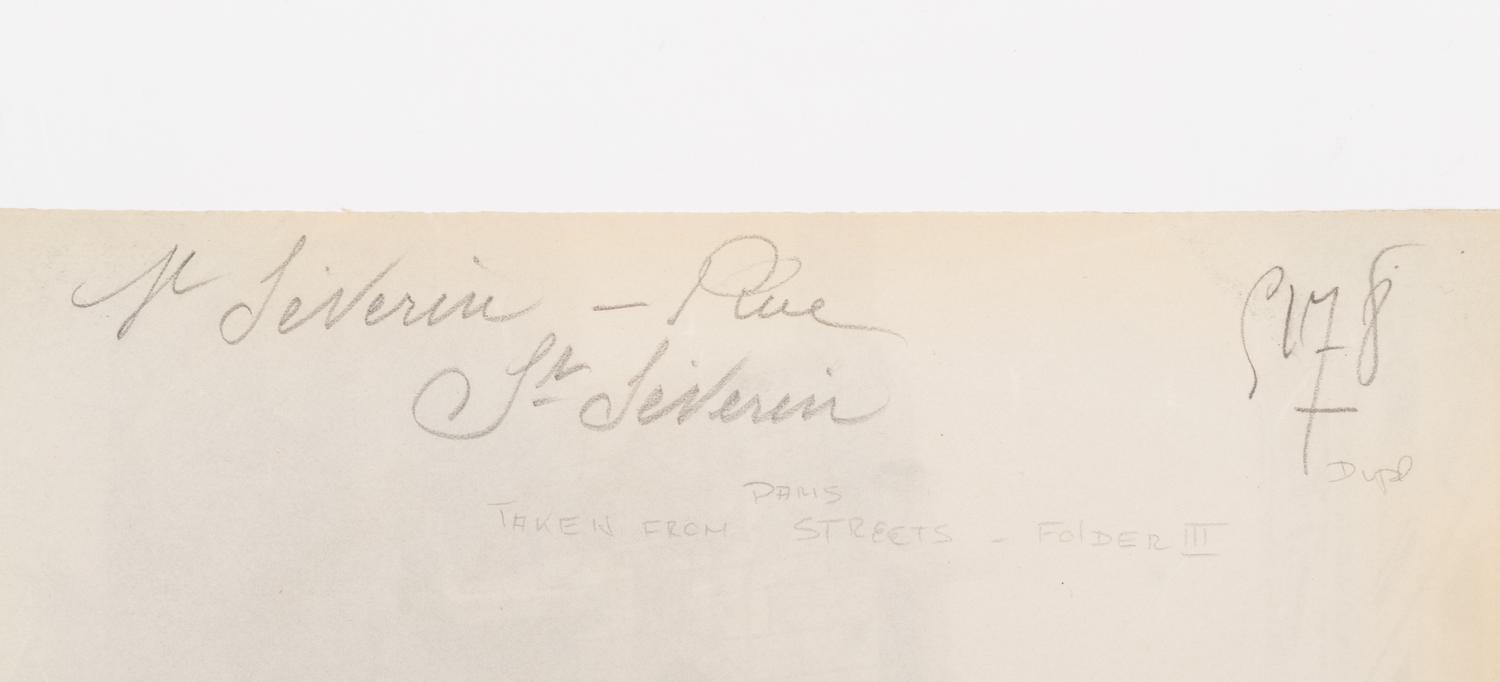 St Séverin – Rue
St Séverin
5178
Dupl
PARIS
TAKEN FROM STREETS - FOLDER III